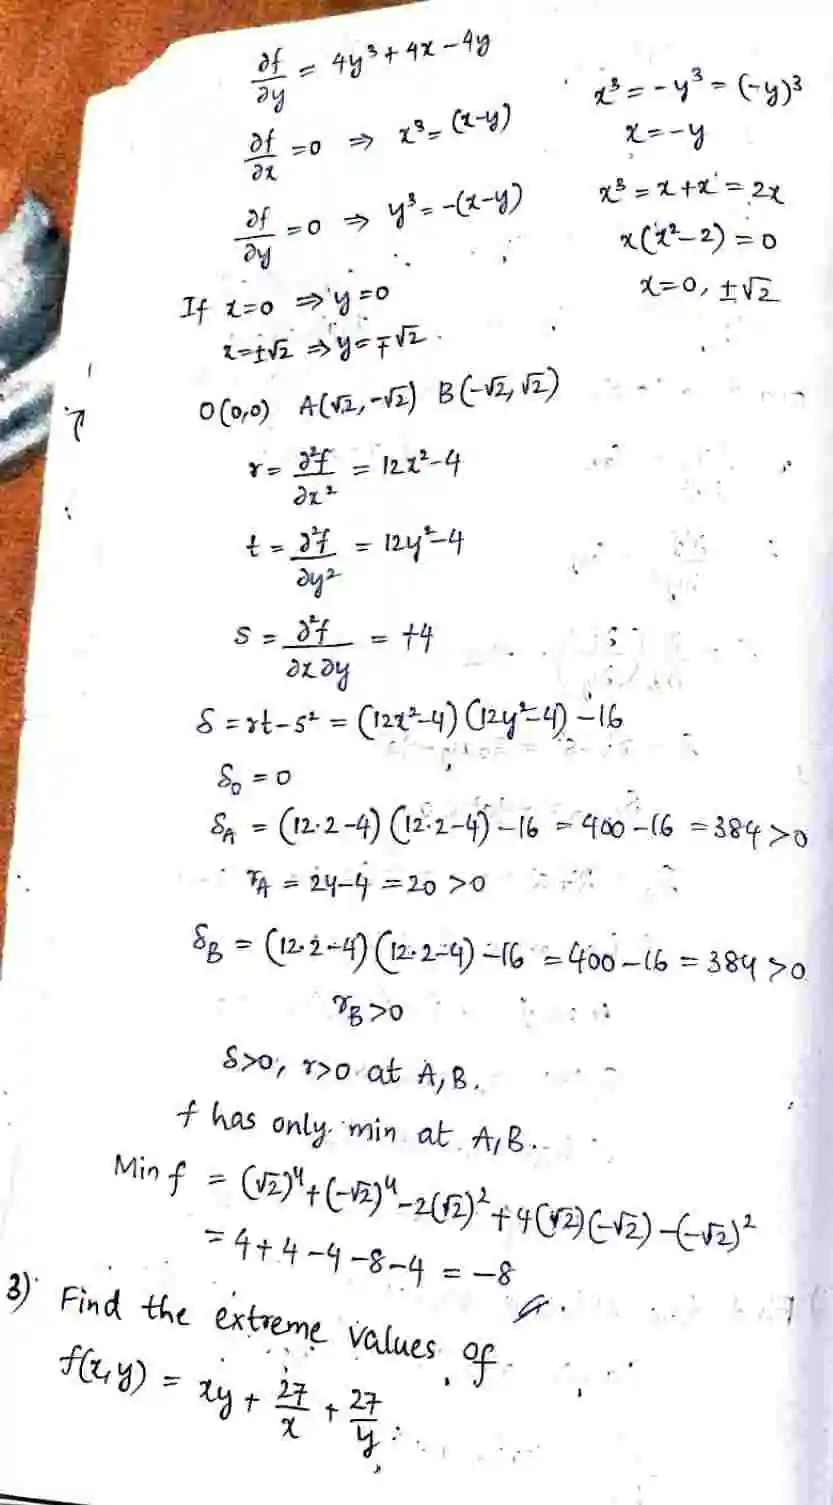 ∂f/∂y = 4y³ + 4x - 4y
∂f/∂x = 0 ⇒ x³ = (x-y)
∂f/∂y = 0 ⇒ y³ = -(x-y)
x³ = -y³ = (-y)³
x = -y
x³ = x + x = 2x
x(x²-2) = 0
x = 0, ±√2
If x=0 ⇒ y=0
x=±√2 ⇒ y=∓√2.
O(0,0) A(√2,-√2) B(-√2,√2)
r = ∂²f/∂x² = 12x²-4
t = ∂²f/∂y² = 12y²-4
s = ∂²f/∂x∂y = +4
δ = rt-s² = (12x²-4)(12y²-4)-16
δ₀ = 0
δ_A = (12·2-4)(12·2-4)-16 = 400-16 = 384>0
r_A = 24-4 = 20 >0
δ_B = (12·2-4)(12·2-4)-16 = 400-16 = 384>0
r_B>0
δ>0, r>0 at A,B.
f has only min at A,B.
Min f = (√2)⁴+(-√2)⁴-2(√2)²+4(√2)(-√2)-(-√2)²
= 4+4-4-8-4 = -8
3) Find the extreme values of
f(x,y) = xy + 27/x + 27/y.